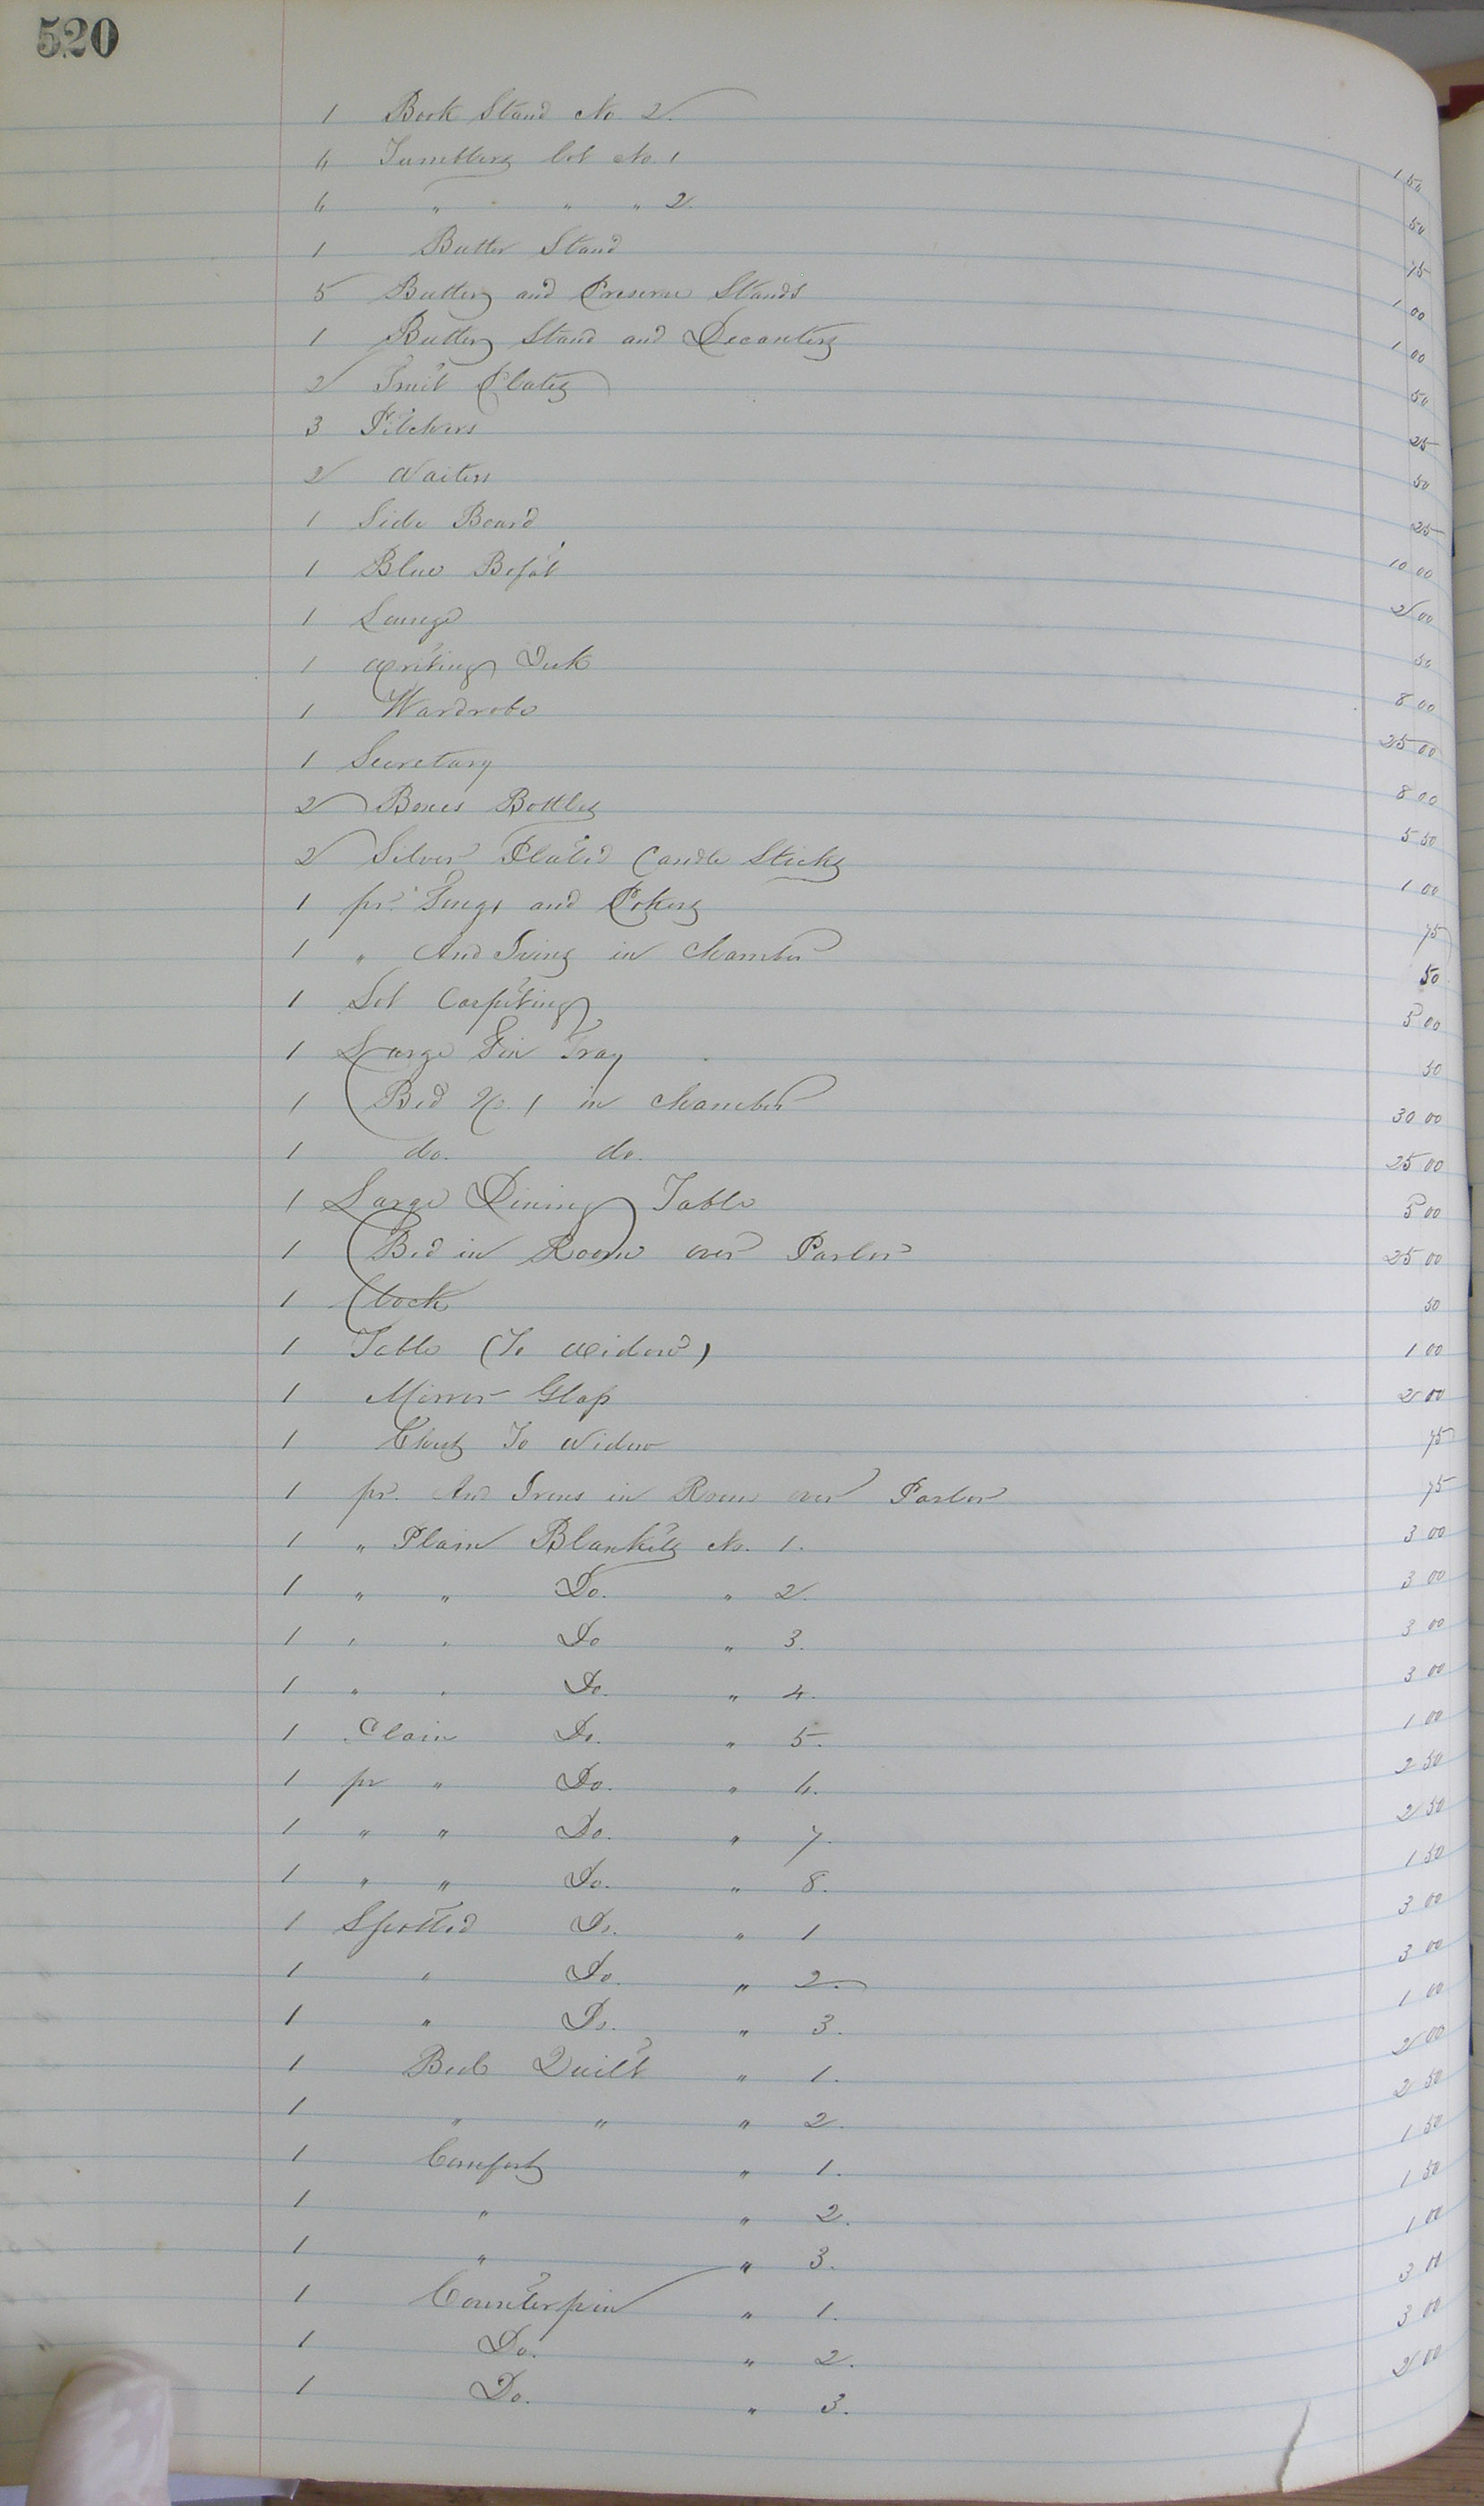 520
1 Book Stand No. 2. 1 50
6 Tumblers lot No. 1 50
6 " " " 2. 75
1 Butter Stand 1 00
5 Butter and Preserve Stands 1 00
1 Butter Stand and Decanters 50
2 Fruit Plates 25
3 Pitchers 50
2 Waiters 25
1 Side Board 10 00
1 Blue Bofat 2 00
1 Lounge 50
1 Writing Desk 8 00
1 Wardrobe 25 00
1 Secretary 8 00
2 Boxes Bottles 5 50
2 Silver Plated Candle Sticks 1 00
1 pr. Tongs and Pokers 75
1 " And Irons in Chamber 50
1 Lot Carpeting 5 00
1 Large Tin Tray 50
1 Bed No. 1 in Chamber 30 00
1 do. do. 25 00
1 Large Dining Table 5 00
1 Bed in Room over Parlor 25 00
1 Clock 50
1 Table (To Widow) 1 00
1 Mirror Glass 2 00
1 Chest To Widow 75
1 pr. And Irons in Room over Parlor 75
1 " Plain Blankets No. 1. 3 00
1 " " Do. " 2. 3 00
1 " " Do " 3. 3 00
1 " " Do. " 4. 3 00
1 Plain Do. " 5. 1 00
1 pr " Do. " 6. 2 50
1 " " Do. " 7. 2 50
1 " " Do. " 8. 1 50
1 Spotted Do. " 1 3 00
1 " Do. " 2. 3 00
1 " Do. " 3. 1 00
1 Bed Quilt " 1. 2 00
1 " " " 2. 2 50
1 Comfort " 1. 1 50
1 " " 2. 1 50
1 " " 3. 1 00
1 Counterpin " 1. 3 00
1 Do. " 2. 3 00
1 Do. " 3. 2 00